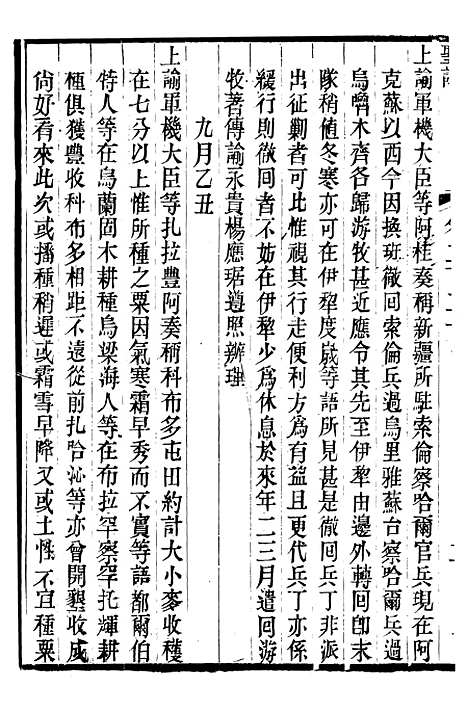 聖訓
上諭軍機大臣等阿桂奏稱新疆所駐索倫察哈爾官兵現在阿
克蘇以西今因換班徹回索倫兵過烏里雅蘇台察哈爾兵過
烏嚕木齊各歸游牧甚近應令其先至伊犂由邊外轉回卽末
隊稍值冬寒亦可在伊犂度歲等語所見甚是徹回兵丁非派
出征勦者可比惟視其行走便利方爲有益且更代兵丁亦係
緩行則徹回者不妨在伊犂少爲休息於來年二三月遣回游
牧著傳諭永貴楊應琚遵照辦理
九月乙丑
上諭軍機大臣等扎拉豐阿奏稱科布多屯田約計大小麥收穫
在七分以上惟所種之粟因氣寒霜早秀而不實等語都爾伯
特人等在烏蘭固木耕種烏梁海人等在布拉罕察罕托輝耕
種俱獲豐收科布多相距不遠從前扎哈沁等亦曾開墾收成
尚好看來此次或播種稍遲或霜雪早降又或土性不宜種粟